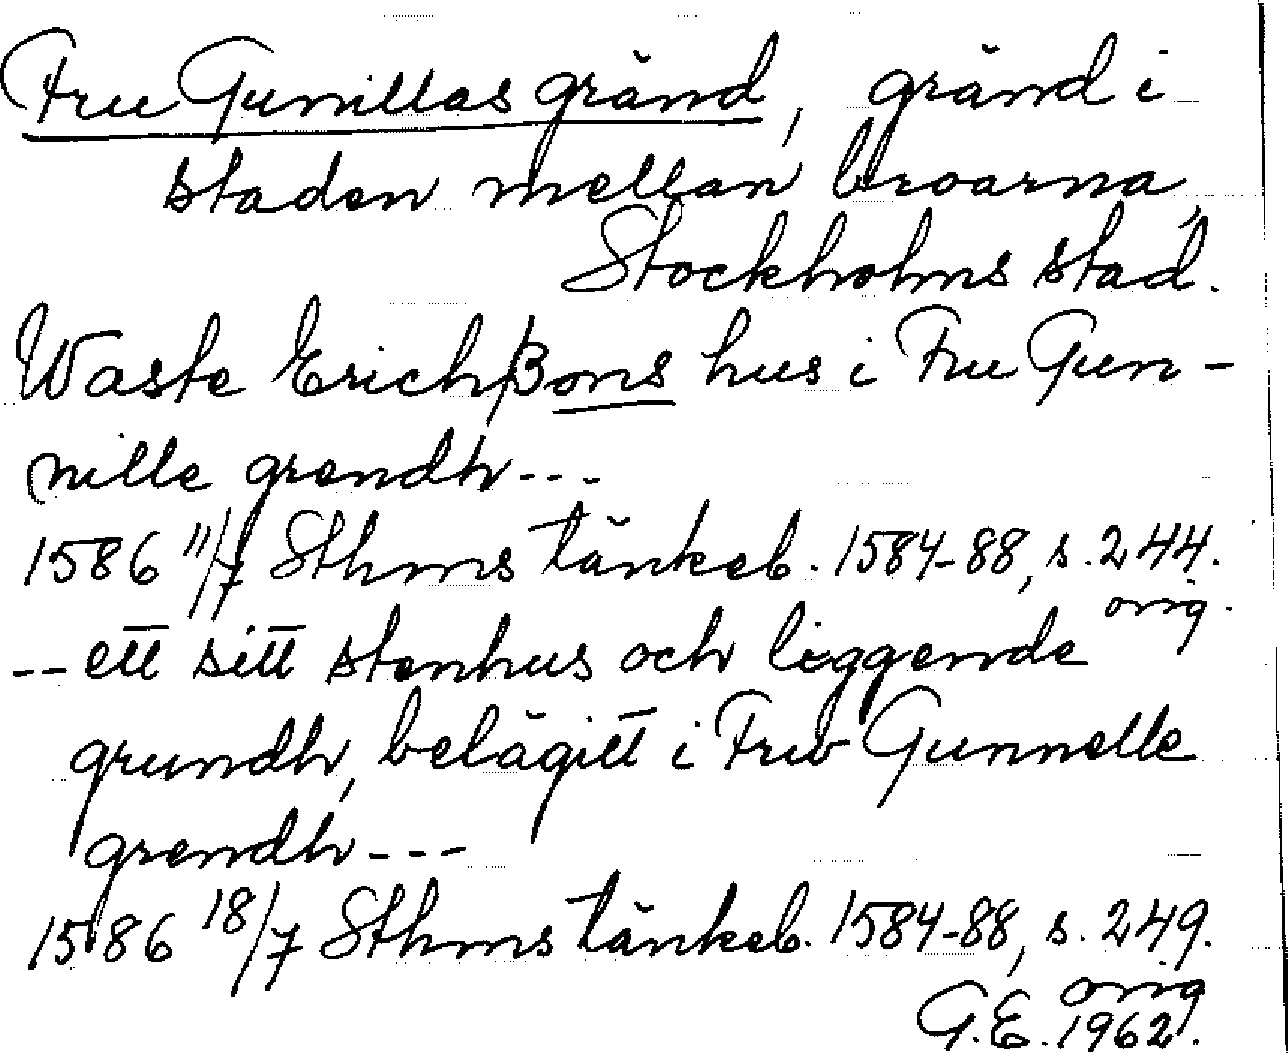 Fru Gunillas gränd, gränd i
staden mellan broarna,
Stockholms stad.
Waste Erichßons hus i Fru Gun-
nille grendh---
1586 11/7 Sthms tänkeb. 1584-88, s. 244.
orig.
--ett sitt stenhus och liggende
grundh, belägitt i Frw Gunnelle
grendh---
1586 18/7 Sthms tänkeb. 1584-88, s. 249.
orig
G.E. 1962.